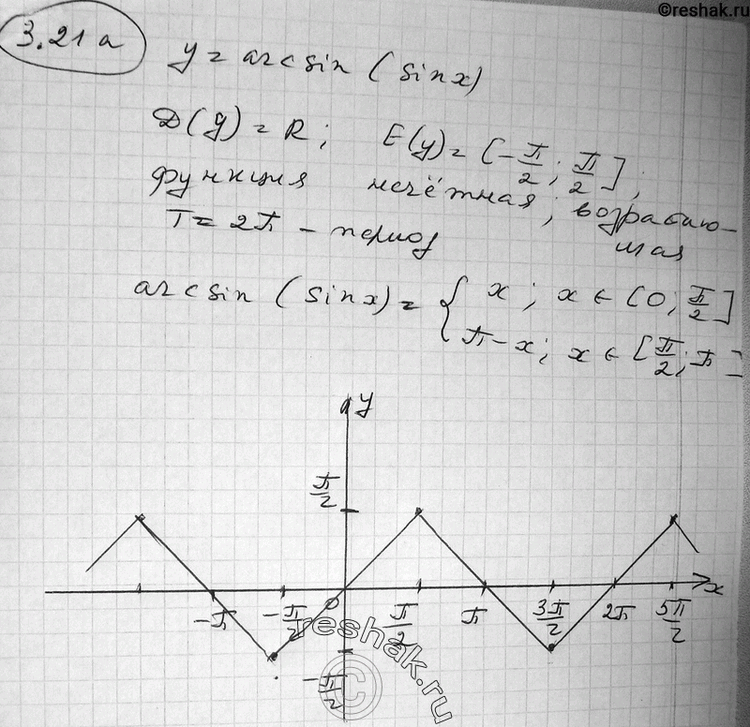 ©reshak.ru
3.21 а
y = arcsin (sinx)
D(y) = R; E(y) = [-π/2; π/2];
функция нечётная; возрастаю-
щая
T = 2π - период
arcsin (sinx) = { x; x ∈ [0; π/2]
π-x; x ∈ [π/2; π]
y
π/2
-π -π/2 0 π/2 π 3π/2 2π 5π/2 x
-π/2
reshak.ru
©